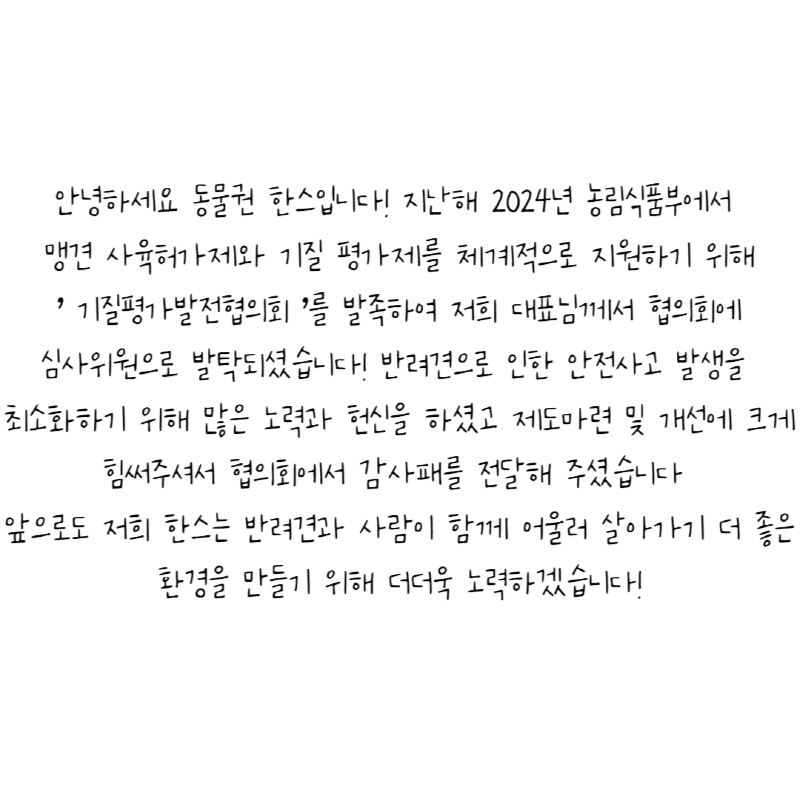 안녕하세요 동물권 한스입니다! 지난해 2024년 농림식품부에서
맹견 사육허가제와 기질 평가제를 체계적으로 지원하기 위해
' 기질평가발전협의회 '를 발족하여 저희 대표님께서 협의회에
심사위원으로 발탁되셨습니다! 반려견으로 인한 안전사고 발생을
최소화하기 위해 많은 노력과 헌신을 하셨고 제도마련 및 개선에 크게
힘써주셔서 협의회에서 감사패를 전달해 주셨습니다
앞으로도 저희 한스는 반려견과 사람이 함께 어울러 살아가기 더 좋은
환경을 만들기 위해 더더욱 노력하겠습니다!